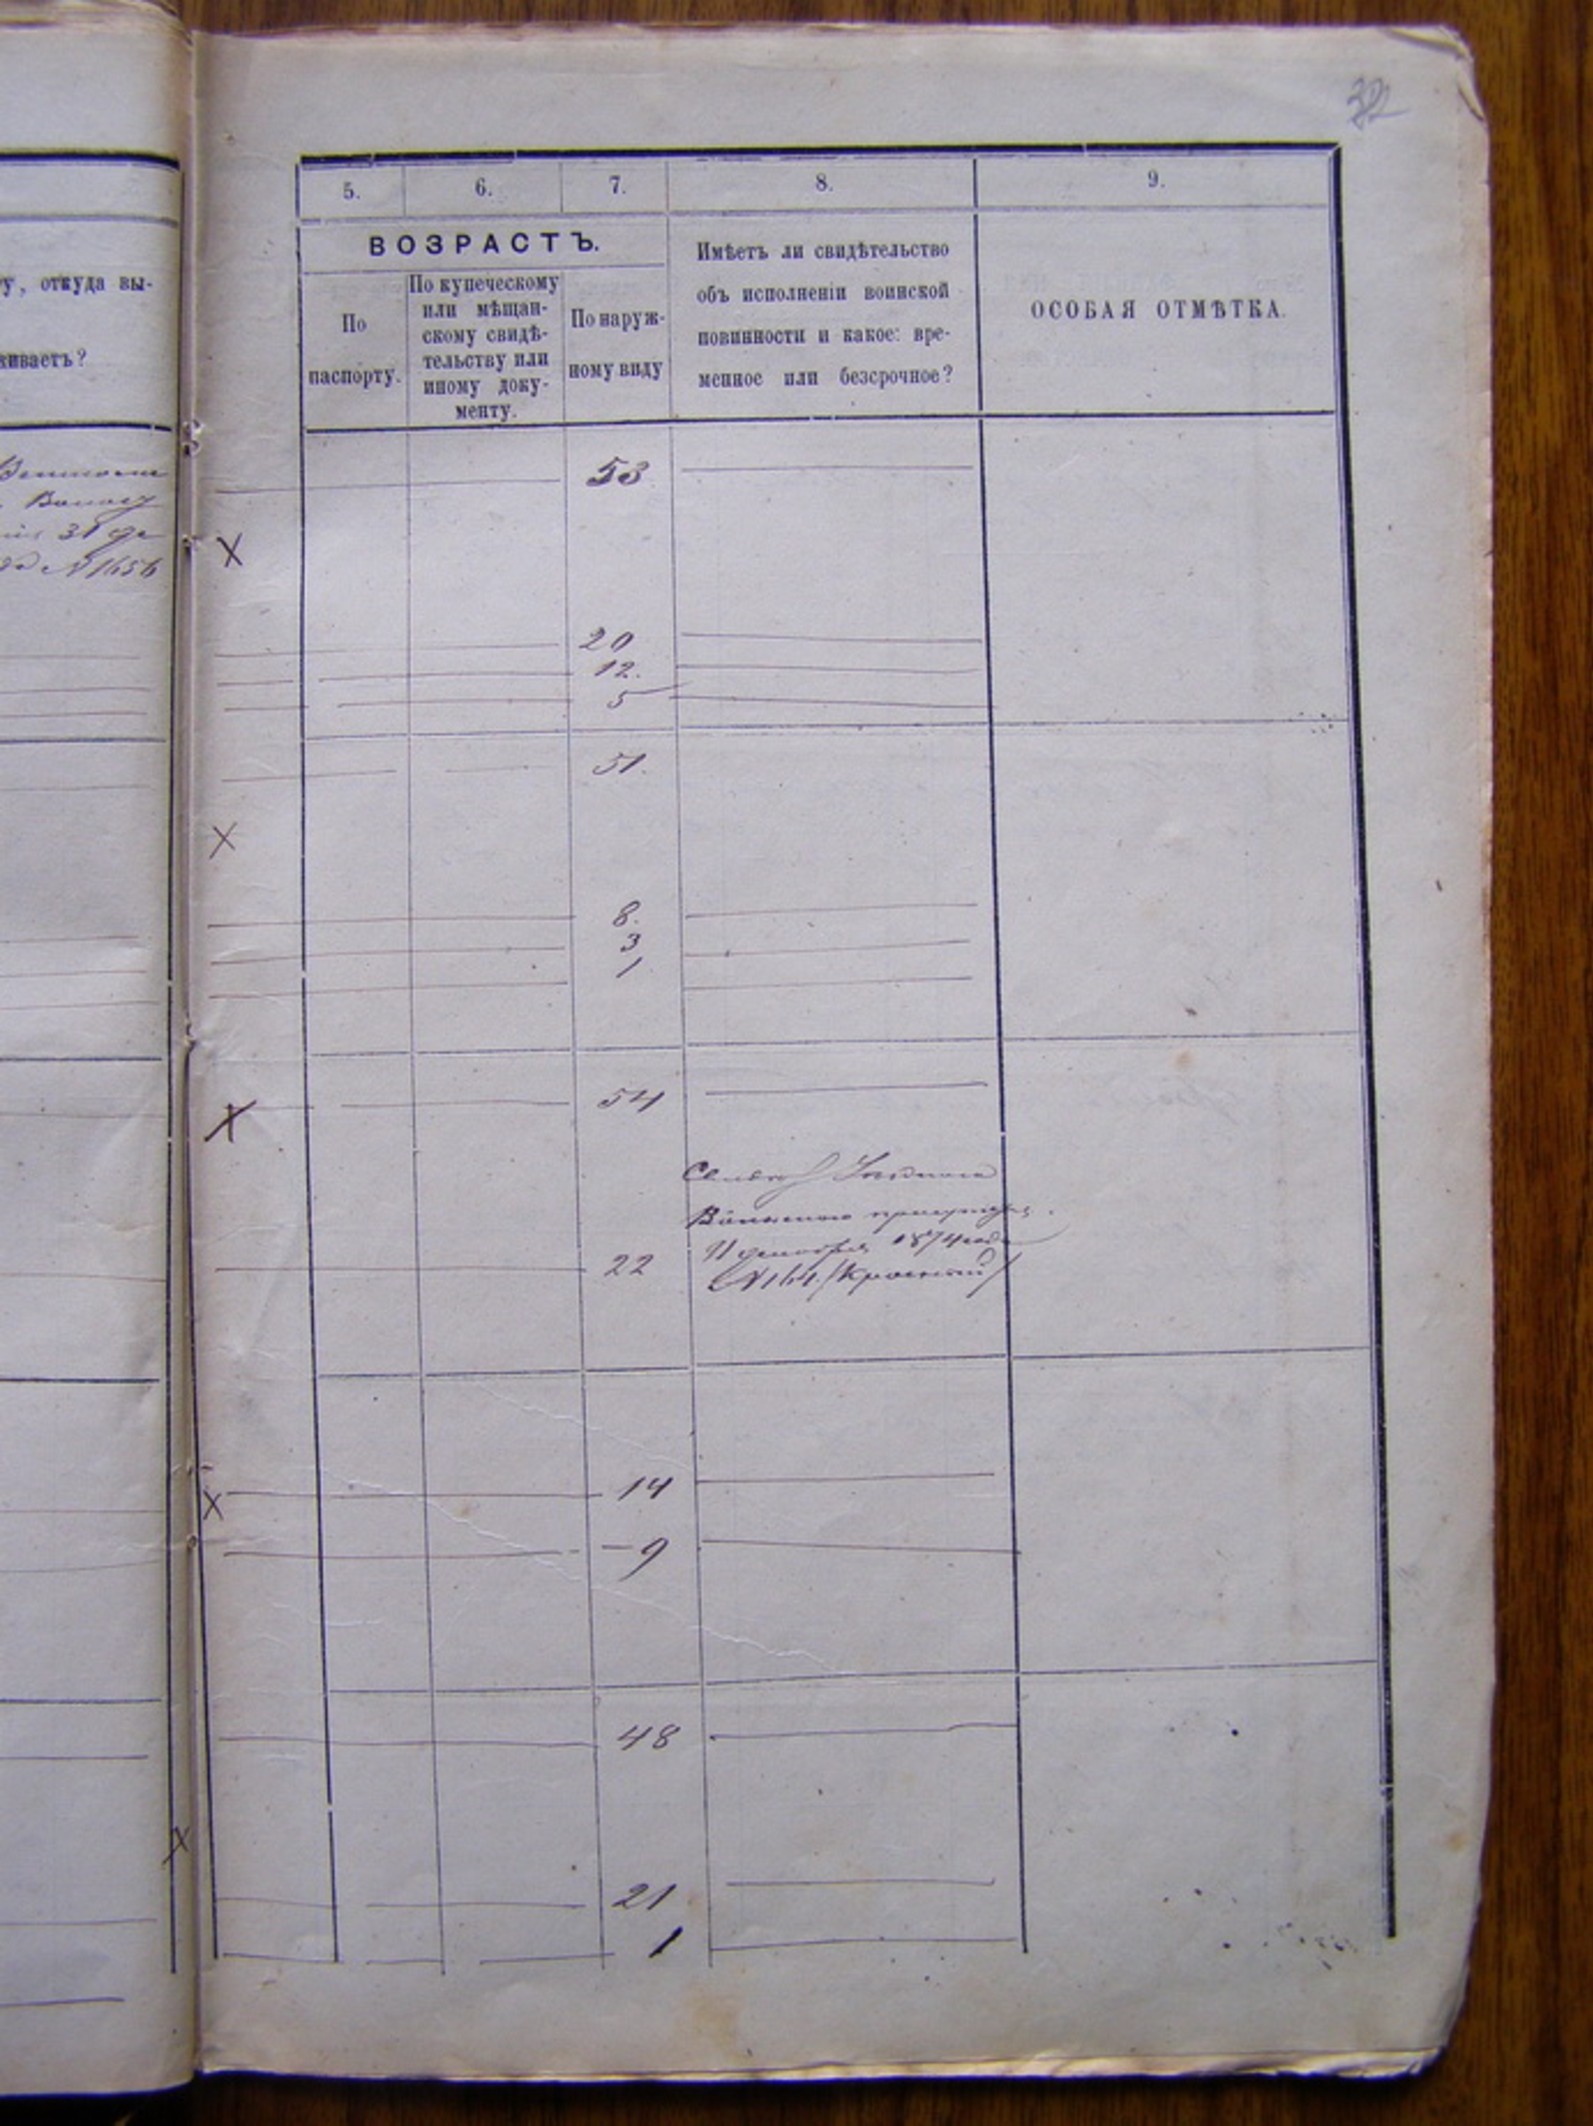 32
5. 6. 7. 8. 9.
ВОЗРАСТЪ.
По
паспорту.
По купеческому
или мѣщан-
скому свидѣ-
тельству или
иному доку-
менту.
По наруж-
ному виду
Имѣетъ ли свидѣтельство
объ исполненіи воинской
повинности и какое: вре-
менное или безсрочное?
ОСОБАЯ ОТМѢТКА.
у, откуда вы-
живаетъ?
31 де
№ 1656
53
20
12.
5
51.
8.
3
1
54
Воинскаго присутствія
11 декабря 1874 года
22
№ 164.
14
9
48
21
1